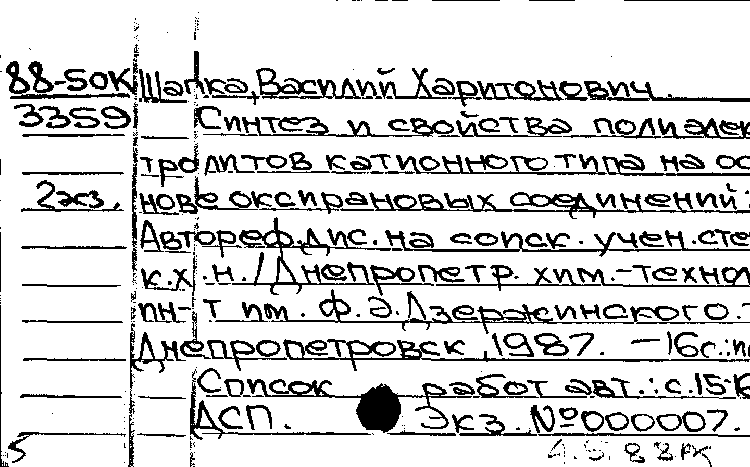 88-50К Шапка, Василий Харитонович.
3359 Синтез и свойства полиэлек
тролитов катионного типа на ос
2экз. нове оксирановых соединений:
Автореф. дис. на соиск. учен. сте
к.х.н. / Днепропетр. хим.-техно
ин-т им. Ф.Э. Дзержинского. -
Днепропетровск, 1987. - 16с.:
Список работ авт.: с.15-
ДСП. Экз. №000007.
5